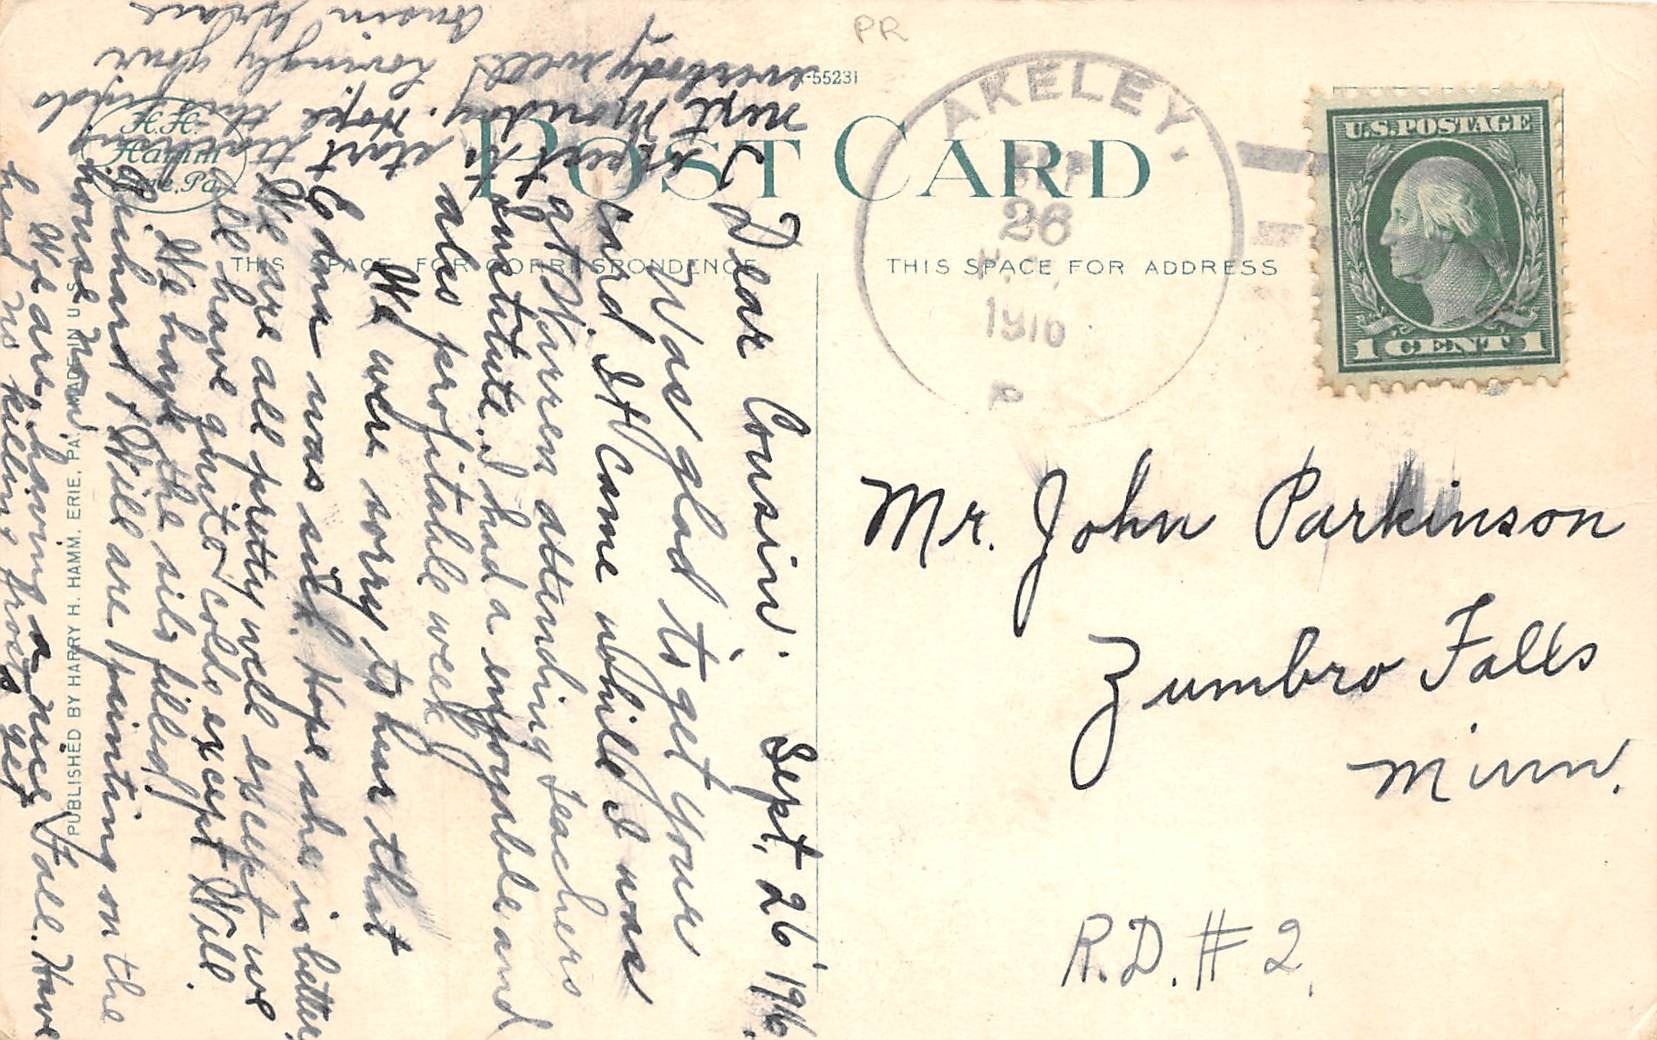 PR
A-55231
POST CARD
H.H.
Hamm
Erie, Pa.
THIS SPACE FOR CORRESPONDENCE
THIS SPACE FOR ADDRESS
AKELEY.
SEP
26
1916
P
U.S. POSTAGE
1 CENT 1
Mr. John Parkinson
Zumbro Falls
Minn.
R.D. # 2.
PUBLISHED BY HARRY H. HAMM, ERIE, PA. MADE IN U.S.
Sept. 26 1916.
Dear Cousin:
Was glad to get your
card. It came while I was
at Warren attending teachers
Institute. I had a enjoyable and
also profitable week
We were sorry to hear that
Edna was sick. Hope she is better
We are all pretty well except we
all have quite colds except Will.
We have the silo filled.
Richard & Will are painting on the
house now.
We are having a nice Fall. Have
had no killing frosts yet
I expect to start teaching
next Monday. Hope this finds
everybody well. Lovingly your
Cousin